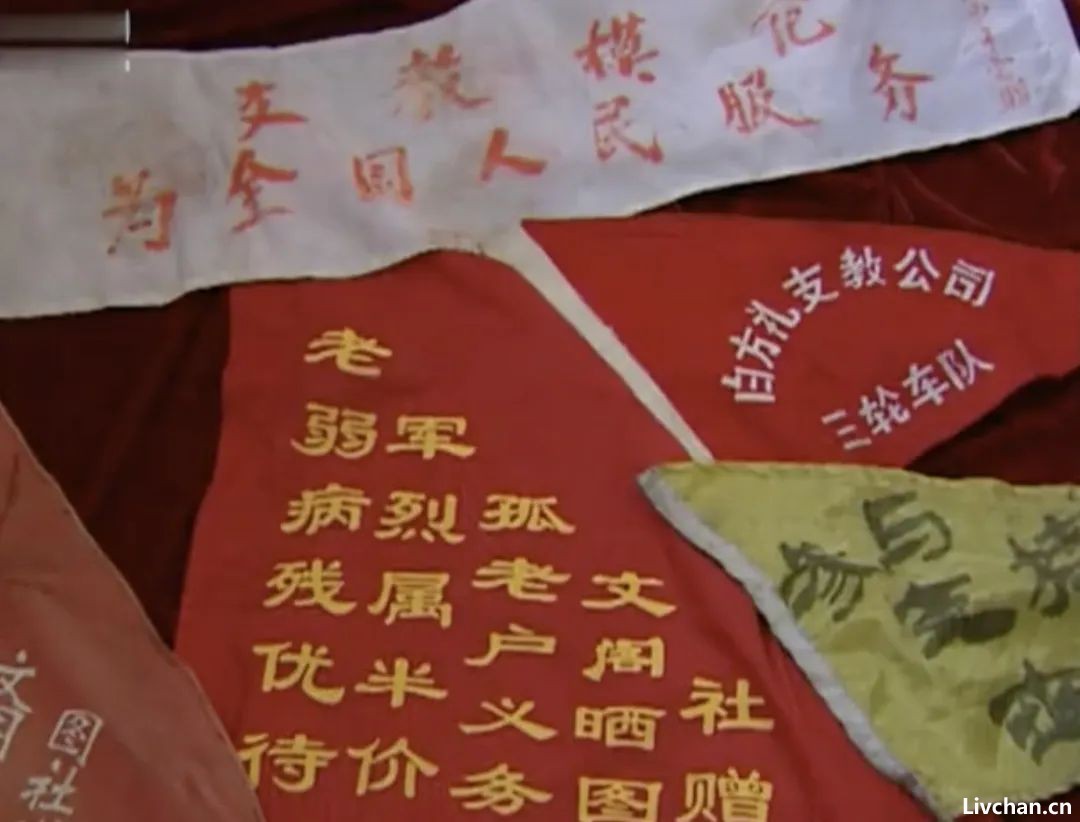 支教模
为全国人民服务
白方礼支教公司
三轮车队
老弱病残优待
军烈属半价
孤老户义务
文阁晒图
社赠
图社
Livchan.cn